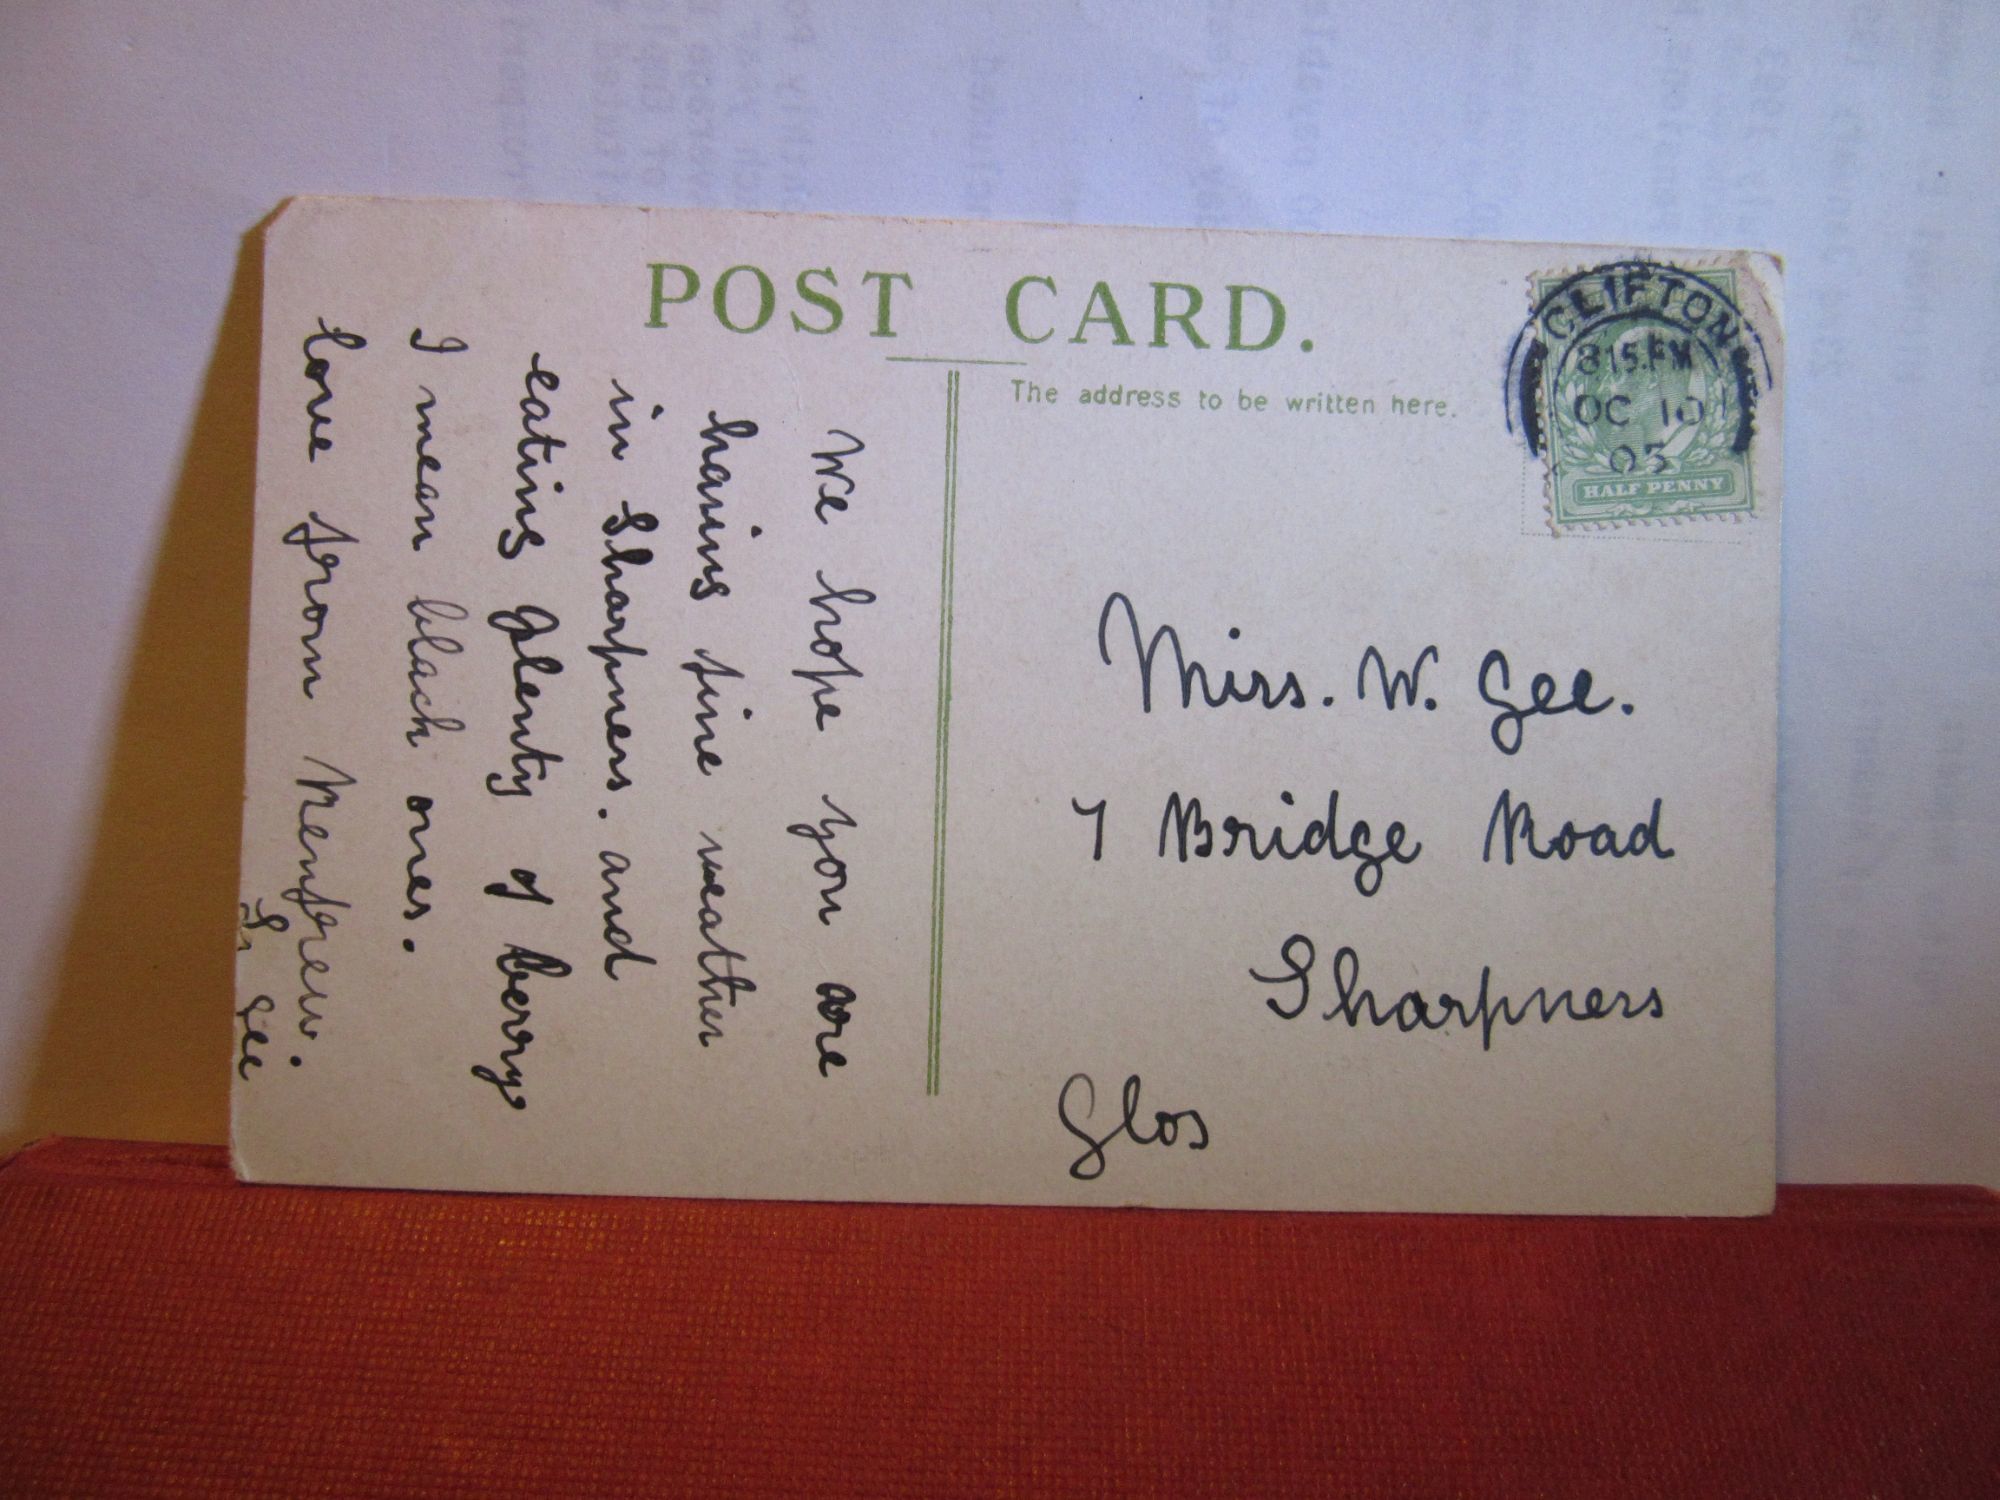 POST CARD.
The address to be written here.
CLIFTON
8 15.PM
OC 10
05
HALF PENNY
We hope you are
having fine weather
in Sharpness. and
eating plenty of berrys
I mean black ones.
love from Renfrew.
Gee
Miss. W. Gee.
7 Bridge Road
Sharpness
Glos